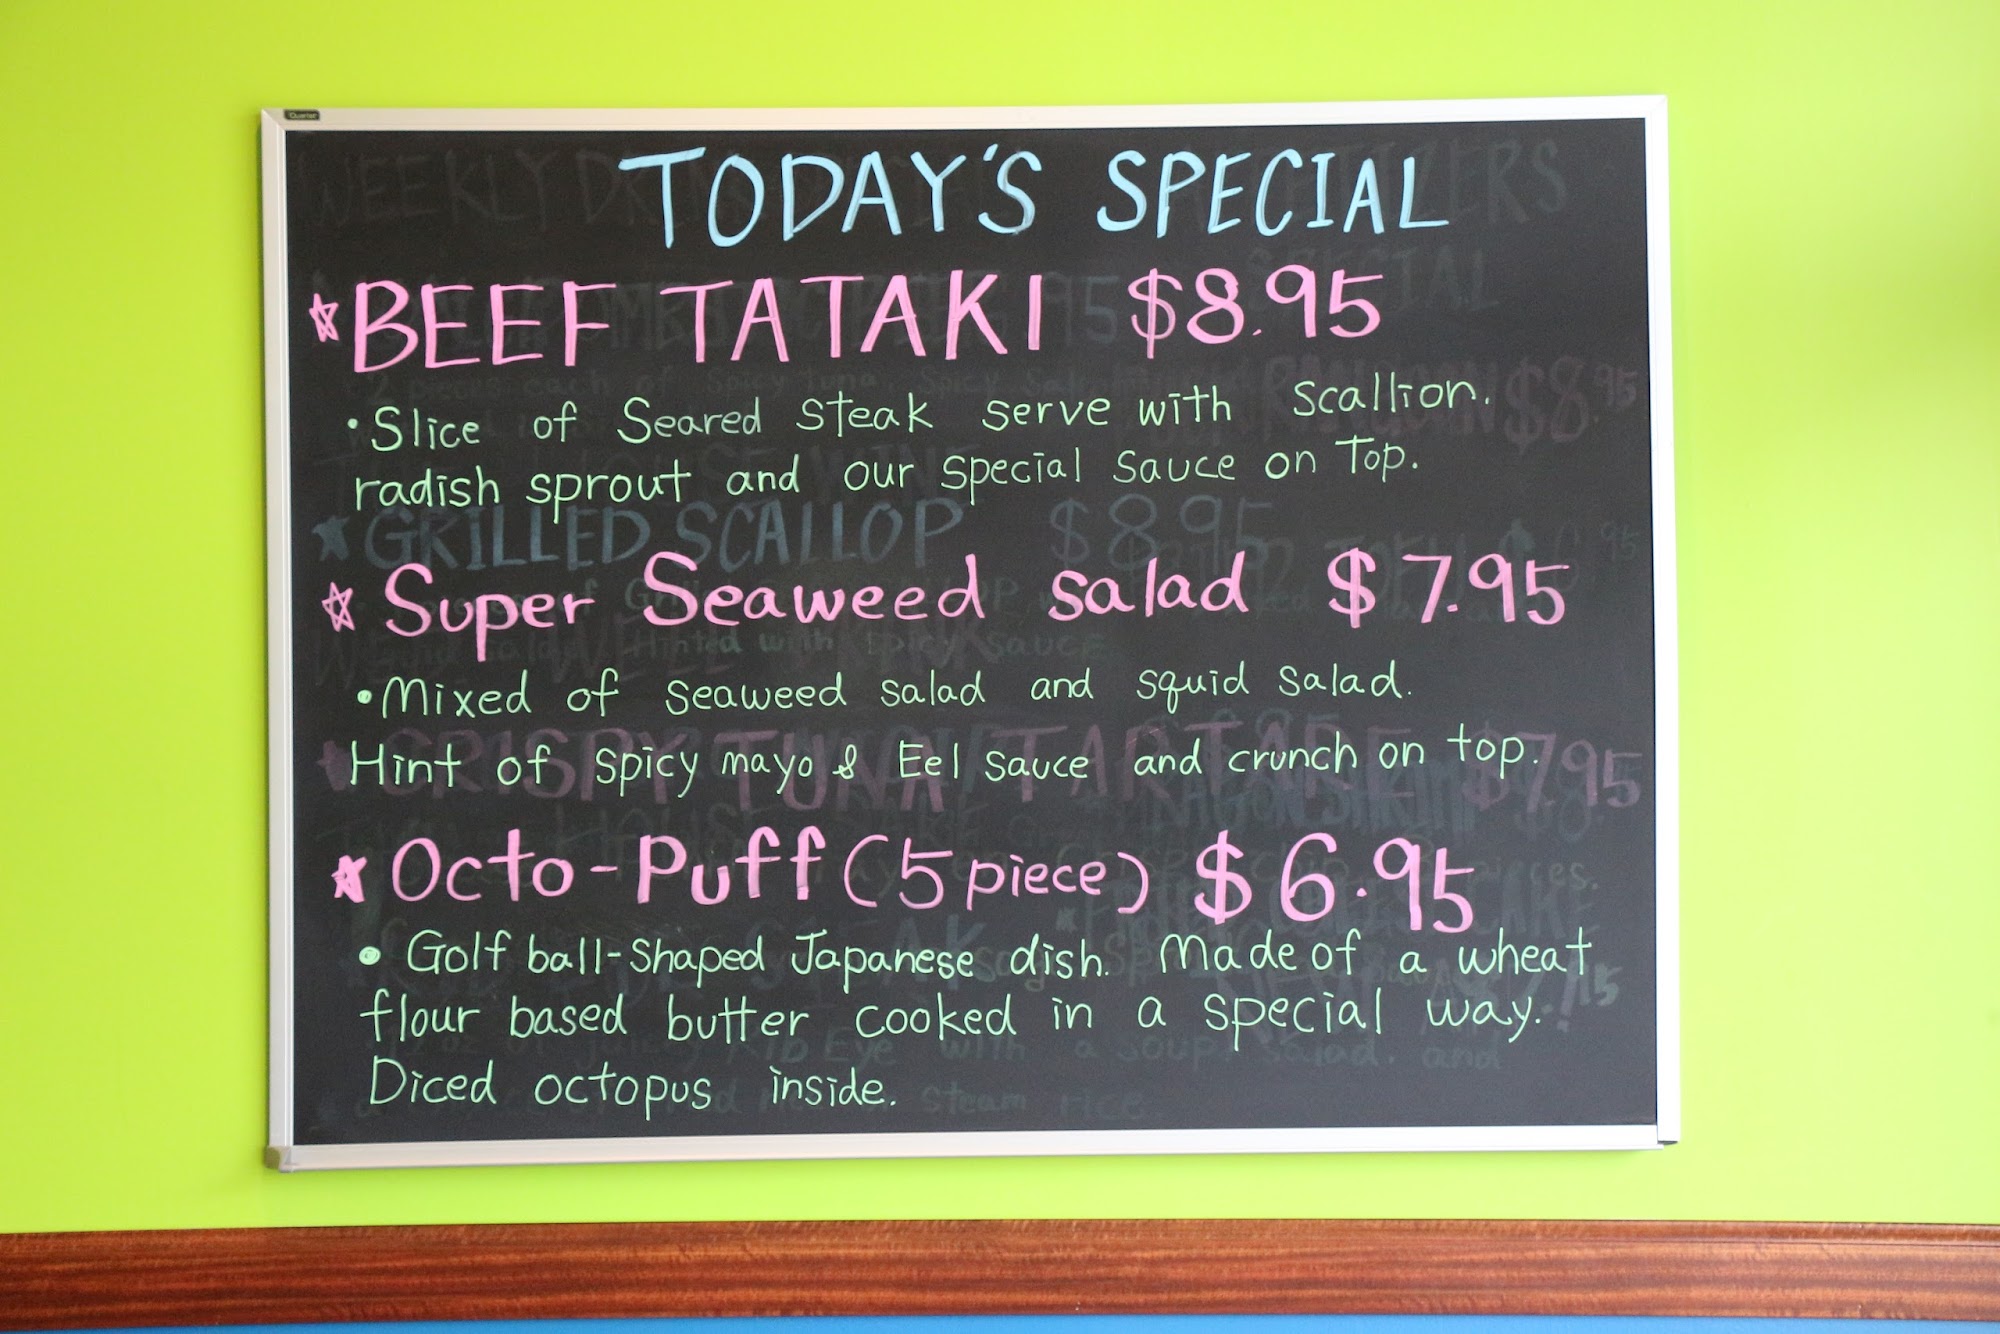 Quartet
TODAY'S SPECIAL
BEEF TATAKI $8.95
• Slice of Seared steak serve with scallion.
radish sprout and our special sauce on Top.
Super Seaweed salad $7.95
• Mixed of seaweed salad and squid salad.
Hint of spicy mayo & Eel sauce and crunch on top.
Octo-Puff (5 piece) $6.95
• Golf ball-shaped Japanese dish. Made of a wheat
flour based butter cooked in a special way.
Diced octopus inside.
GRILLED SCALLOP $8.95
CRISPY TUNA TARTARE $7.95